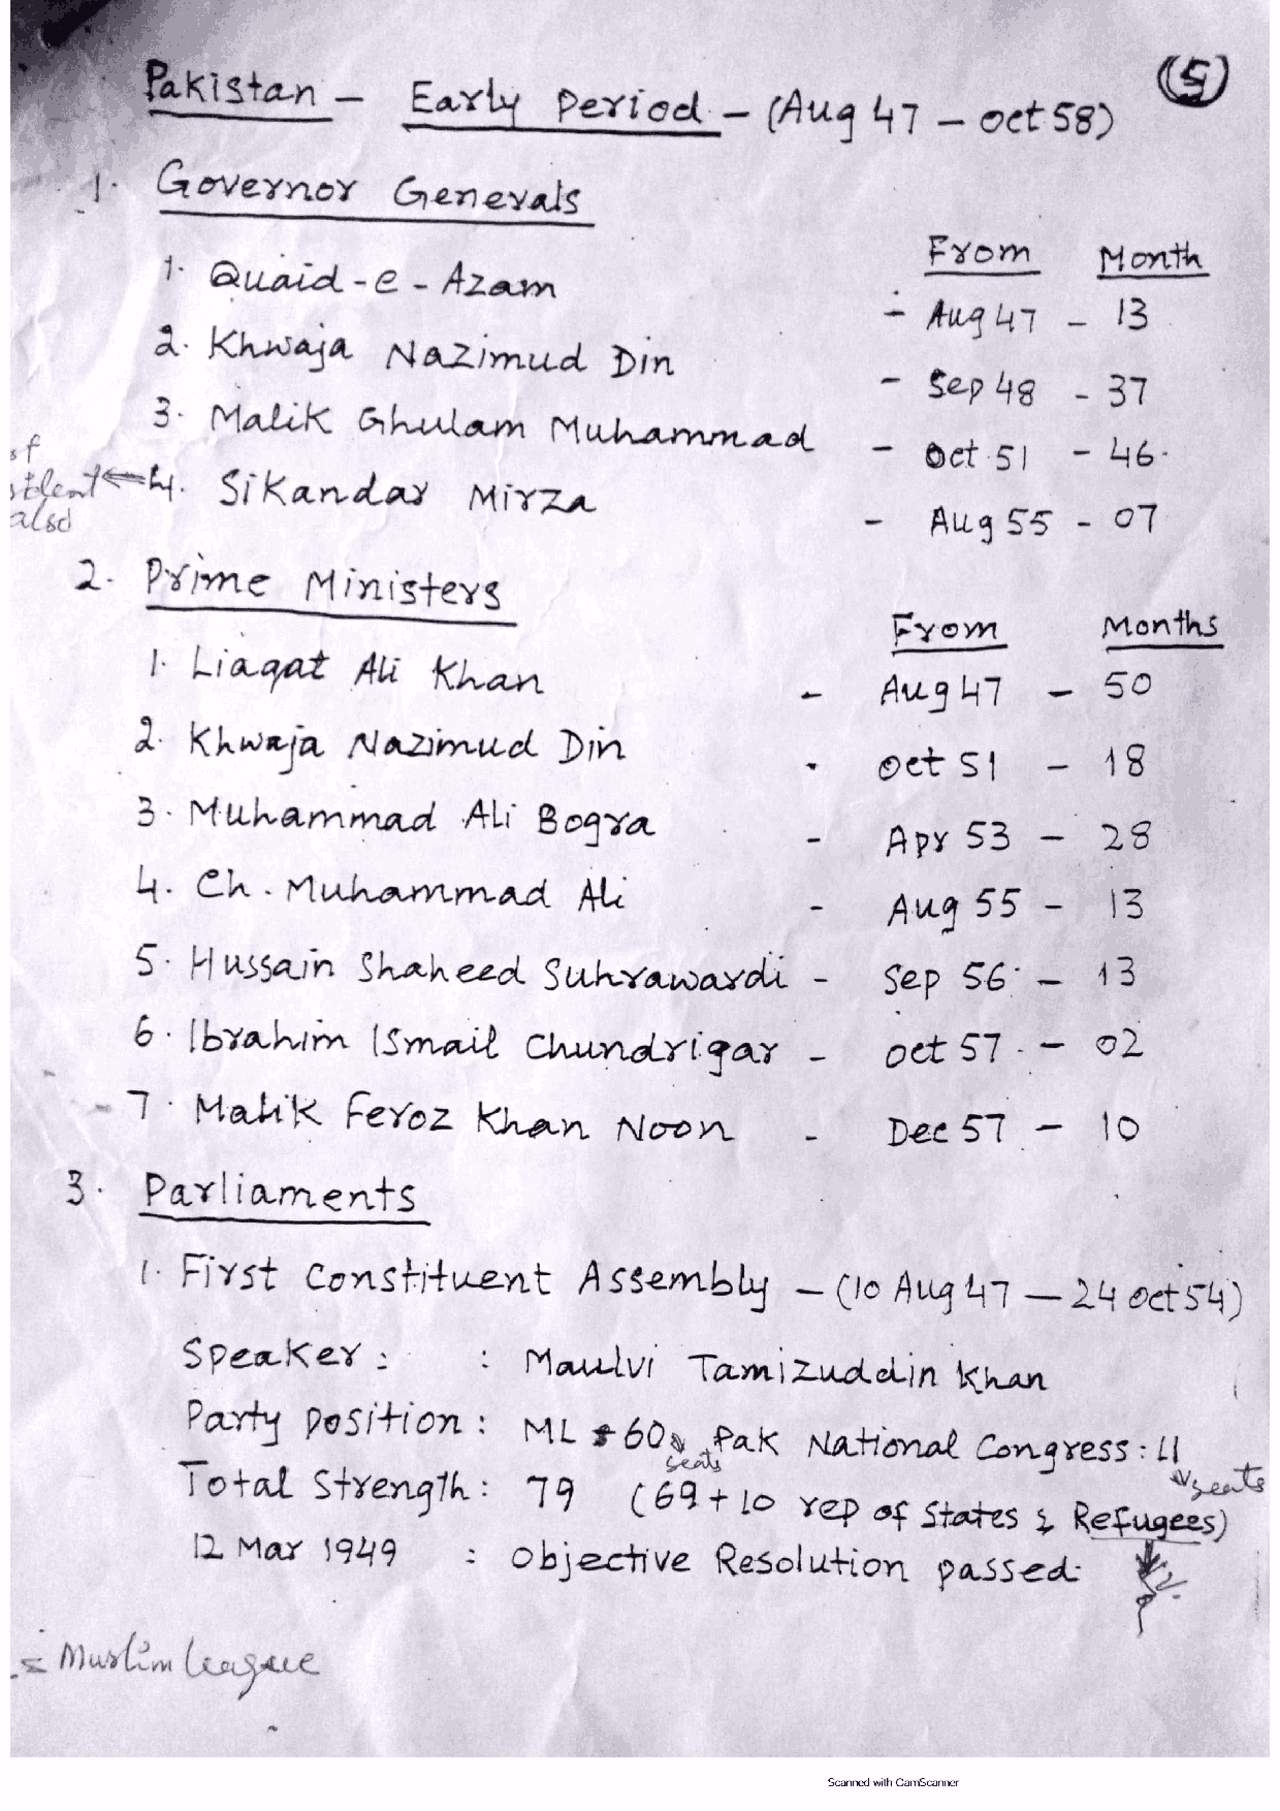 (5)
Pakistan - Early Period - (Aug 47 - oct 58)
1. Governor Generals
From Month
1. Quaid-e-Azam - Aug 47 - 13
2. Khwaja Nazimud Din - Sep 48 - 37
3. Malik Ghulam Muhammad - Oct 51 - 46
4. Sikandar Mirza - Aug 55 - 07
also
2. Prime Ministers
From Months
1. Liaqat Ali Khan - Aug 47 - 50
2. Khwaja Nazimud Din - Oct 51 - 18
3. Muhammad Ali Bogra - Apr 53 - 28
4. Ch. Muhammad Ali - Aug 55 - 13
5. Hussain Shaheed Suhrawardi - Sep 56 - 13
6. Ibrahim Ismail Chundrigar - oct 57 - 02
7. Malik Feroz Khan Noon - Dec 57 - 10
3. Parliaments
1. First Constituent Assembly - (10 Aug 47 — 24 oct 54)
Speaker : : Maulvi Tamizuddin Khan
Party position : ML 60 seats Pak National Congress : 11 seats
Total Strength : 79 (69 + 10 rep of States & Refugees)
12 Mar 1949 : Objective Resolution passed.
= Muslim league
Scanned with CamScanner